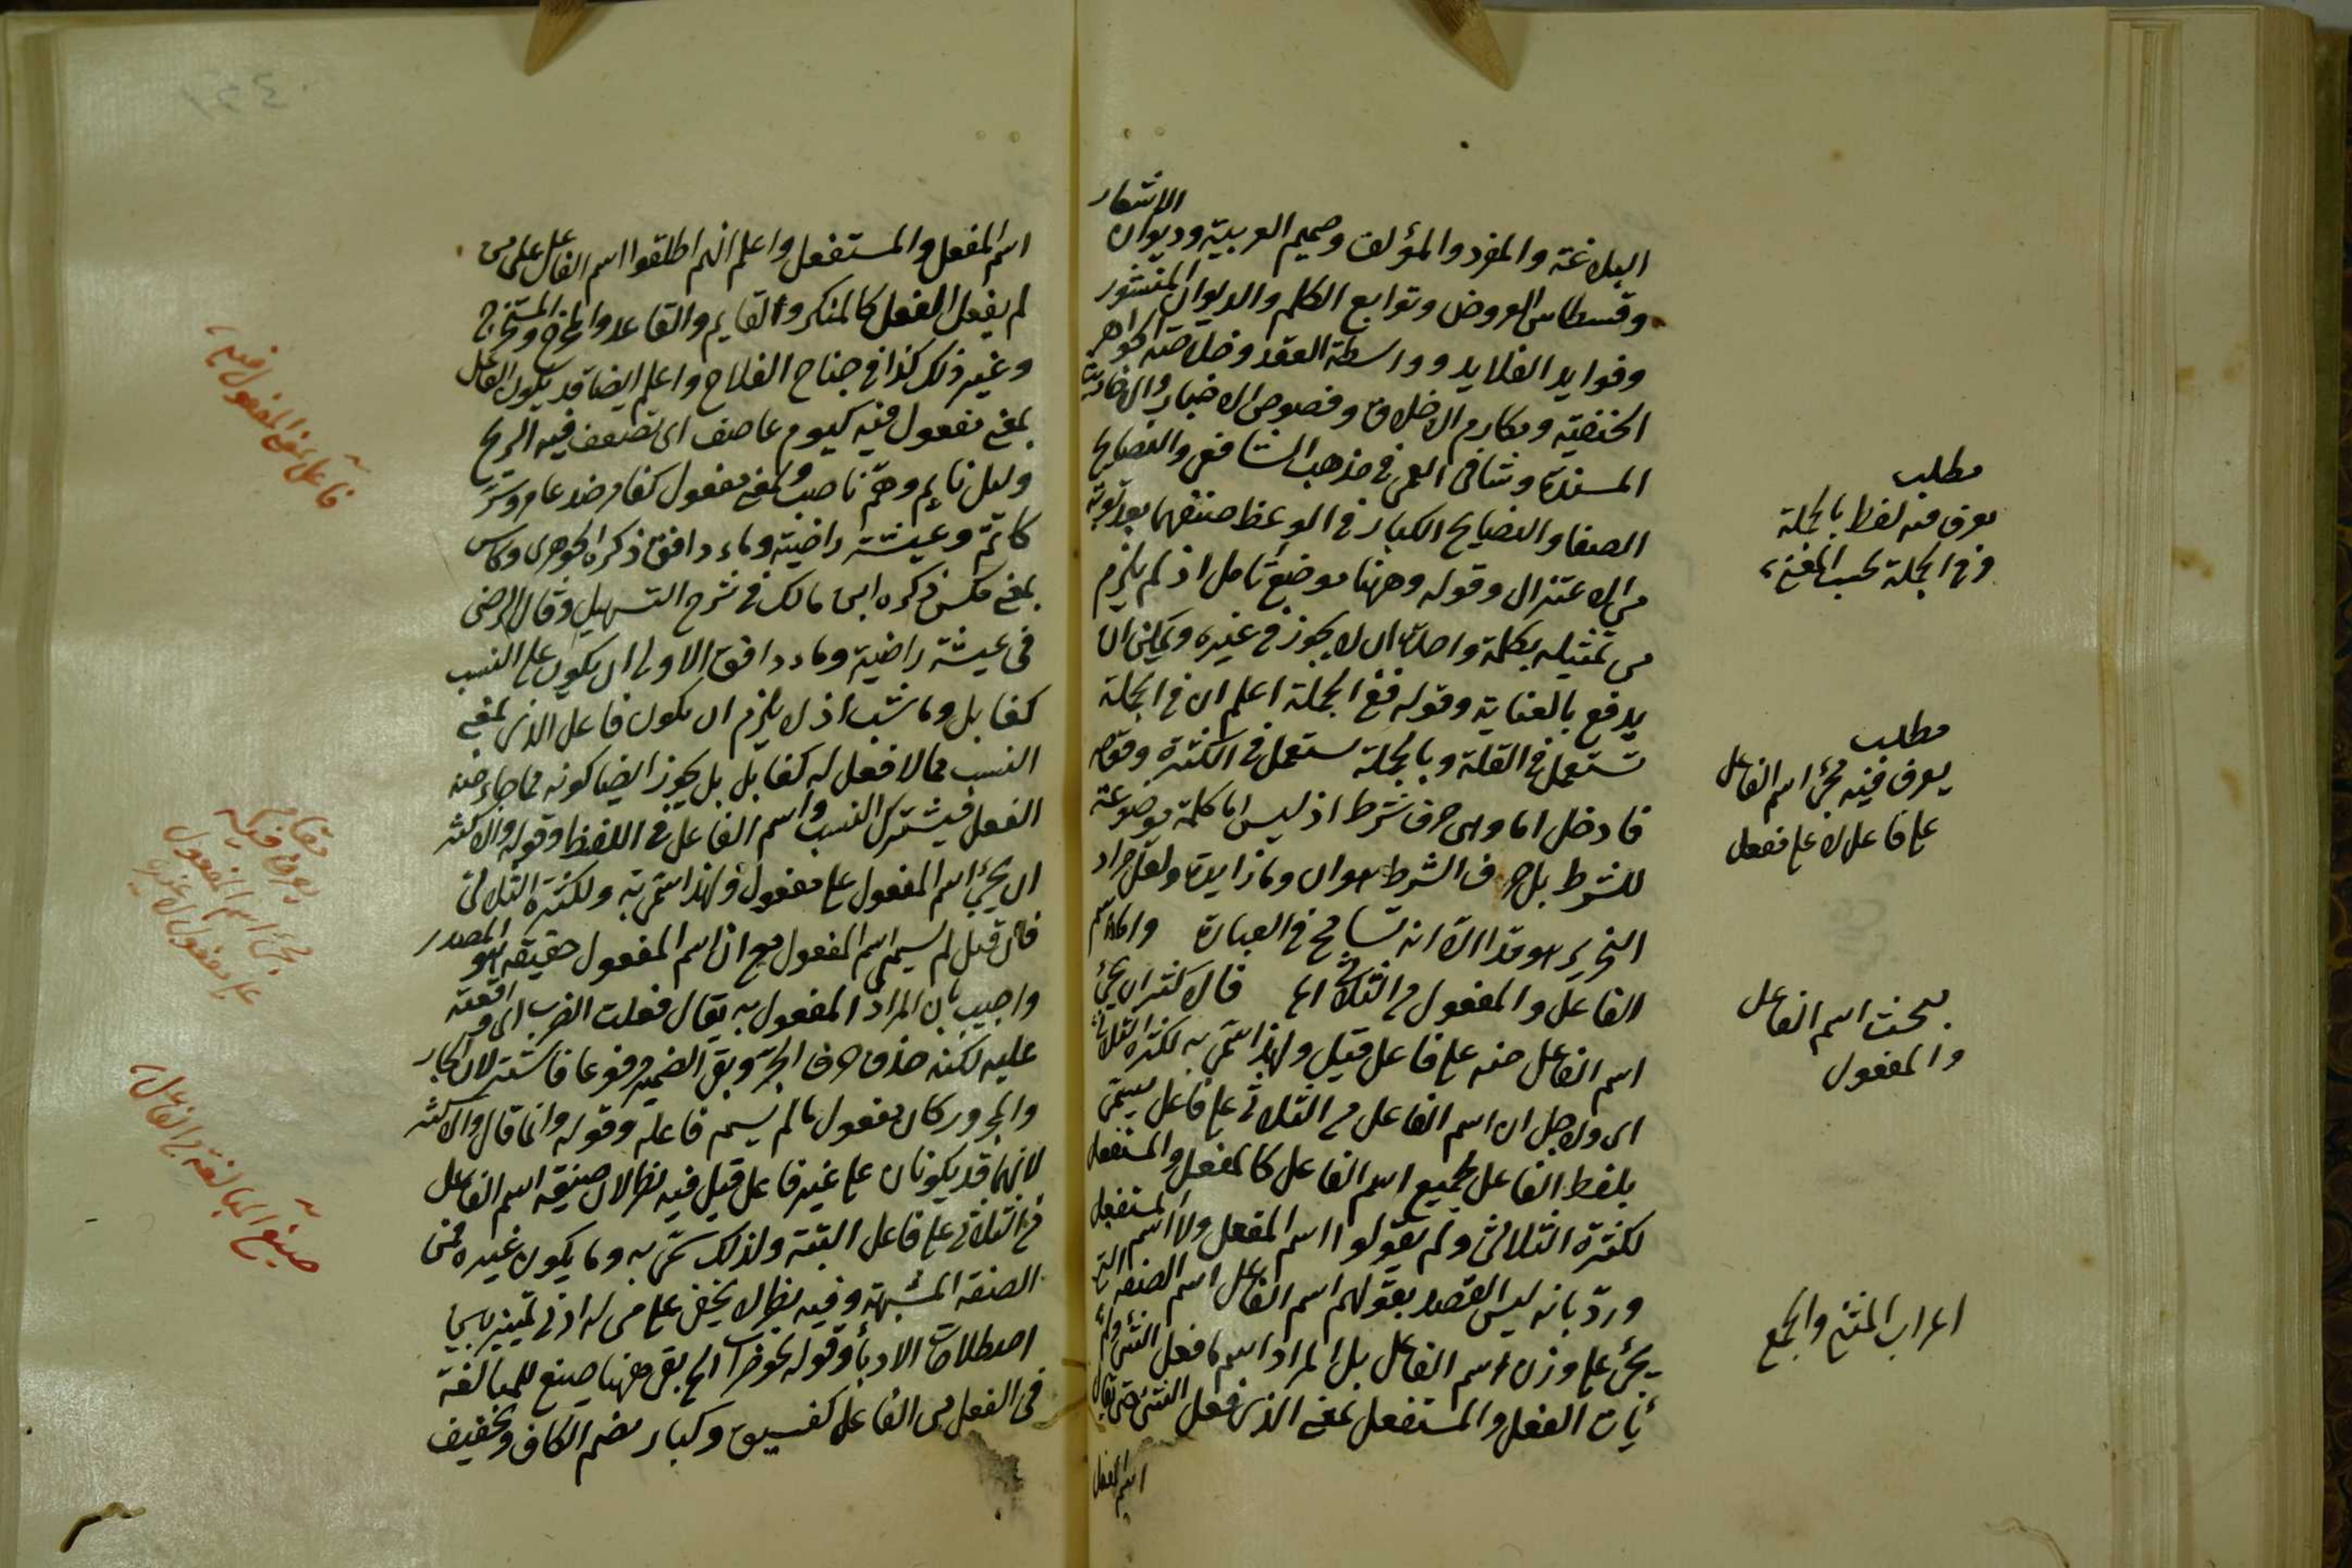 الاشعار
البلاغة والمفرد والمؤلف وصميم العربية وديوان
وقسطاس العروض وتوابع الكلم والديوان المنشور
وفوايد القلايد وواسطة العقد وخلاصة الجواهر
الحنفية ومكارم الاخلاق وفصوص الاخبار
المسندة وشافى العى فى مذهب الشافعى والنصايح
الصغار والنصايح الكبار فى الوعظ صنفهما بعد توبته
من الاعتزال وقوله وههنا موضع تأمل اذ لم يلزم
من تمثيله بكلمة واحدة ان لا يجوز فى غيره ويمكن ان
يدفع بالعناية وقوله ففى الجملة اعلم ان فى الجملة
تستعمل فى القلة وبالجملة تستعمل فى الكثرة وقوله
فادخل اما وهى حرف شرط اذ ليس اما كلمة موضوعة
للشرط بل حرف الشرط هو ان وما زايدة ولعل مراد
النحرير هو هذا الا انه تسامح فى العبارة واما اسم
الفاعل والمفعول من الثلاثى اه قال كثر ان يجئ
اسم الفاعل منه على فاعل قيل ولهذا سمى به لكثرة الثلاثى
اى ولاجل ان اسم الفاعل من الثلاثى على فاعل سمى
بلفظ الفاعل لجميع اسم الفاعل كالمفعل والمستفعل
لكثرة الثلاثى ولم يقولوا اسم المفعل ولا اسم المستفعل
ورد بانه ليس القصد بقولهم اسم الفاعل اسم الصيغة التى
يجئ على وزن اسم الفاعل بل المراد اسم ما فعل الشئ ولم
يأت المفعل والمستفعل بمعنى الذى فعل الشئ حتى يقال
اسم المفعل
مطلب
يعرف منه لفظ بالجملة
وفى الجملة بحسب المعنى
مطلب
يعرف فيه مجئ اسم الفاعل
على فاعل لا على مفعل
بحث اسم الفاعل
والمفعول
اعراب المثنى والجمع
اسم المفعل والمستفعل واعلم انهم اطلقوا اسم الفاعل على من
لم يفعل الفعل كالمنكر والقايم والقاعد والمخرج والمستخرج
وغير ذلك كذا فى جناح الفلاح واعلم ايضا قد يكون الفاعل
بمعنى مفعول فيه كيوم عاصف اى تعصف فيه الريح
وليل نايم وهم ناصب وبمعنى مفعول كغامر ضد عامر وسر
كاتم وعيشة راضية وماء دافق ذكره الجوهرى وكاس
بمعنى مكس ذكره ابن مالك فى شرح التسهيل وقال الرضى
فى عيشة راضية وماء دافق الاولى ان يكون على النسب
كنابل وناشب اذ لا يلزم ان يكون فاعل الذى بمعنى
النسب مما لا فعل له كنابل بل يجوز ايضا كونه مما جاء منه
الفعل فيشترك النسب واسم الفاعل فى اللفظ وقوله والاكثر
ان يجئ اسم المفعول على مفعول ولهذا سمى به ولكثرة الثلاثى
فان قيل لم سمى اسم المفعول مع ان اسم المفعول حقيقة هو المصدر
واجيب بان المراد المفعول به يقال فعلت الضرب اى اوقعته
عليه لكنه حذف حرف الجر وبقى الضمير مرفوعا فاستتر لان الجار
والمجرور كان مفعول ما لم يسم فاعله وقوله وانما قال والاكثر
لانهما قد يكونان على غير فاعل قيل فيه نظر لان صيغة اسم الفاعل
فى الثلاثى على فاعل البتة ولذلك سمى به وما يكون غيره فمن
الصفة المشبهة وفيه نظر لا يخفى على من له ادنى تمييز باساليب
اصطلاحات الادباء وقوله نحو ضراب الخ بقى ههنا صيغ للمبالغة
فى الفعل من الفاعل كفسيق وكبار بضم الكاف وتخفيف
فاعل بمعنى المفعول فيه
مقام
يعرف فيه
مجئ اسم المفعول
على مفعول لا غيره
صيغ المبالغة من الفاعل